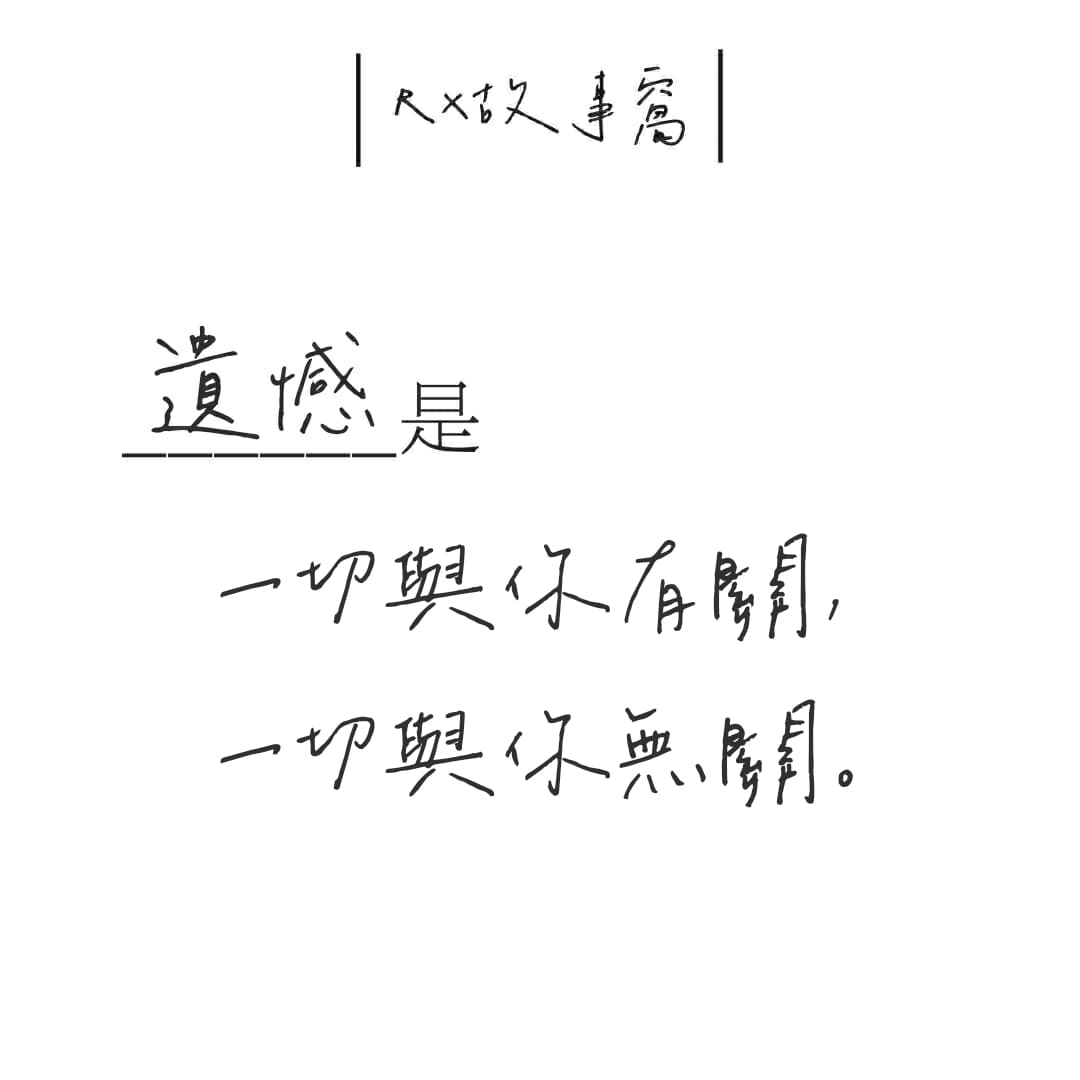 |R×故事窩|
遺憾是
一切與你有關,
一切與你無關。